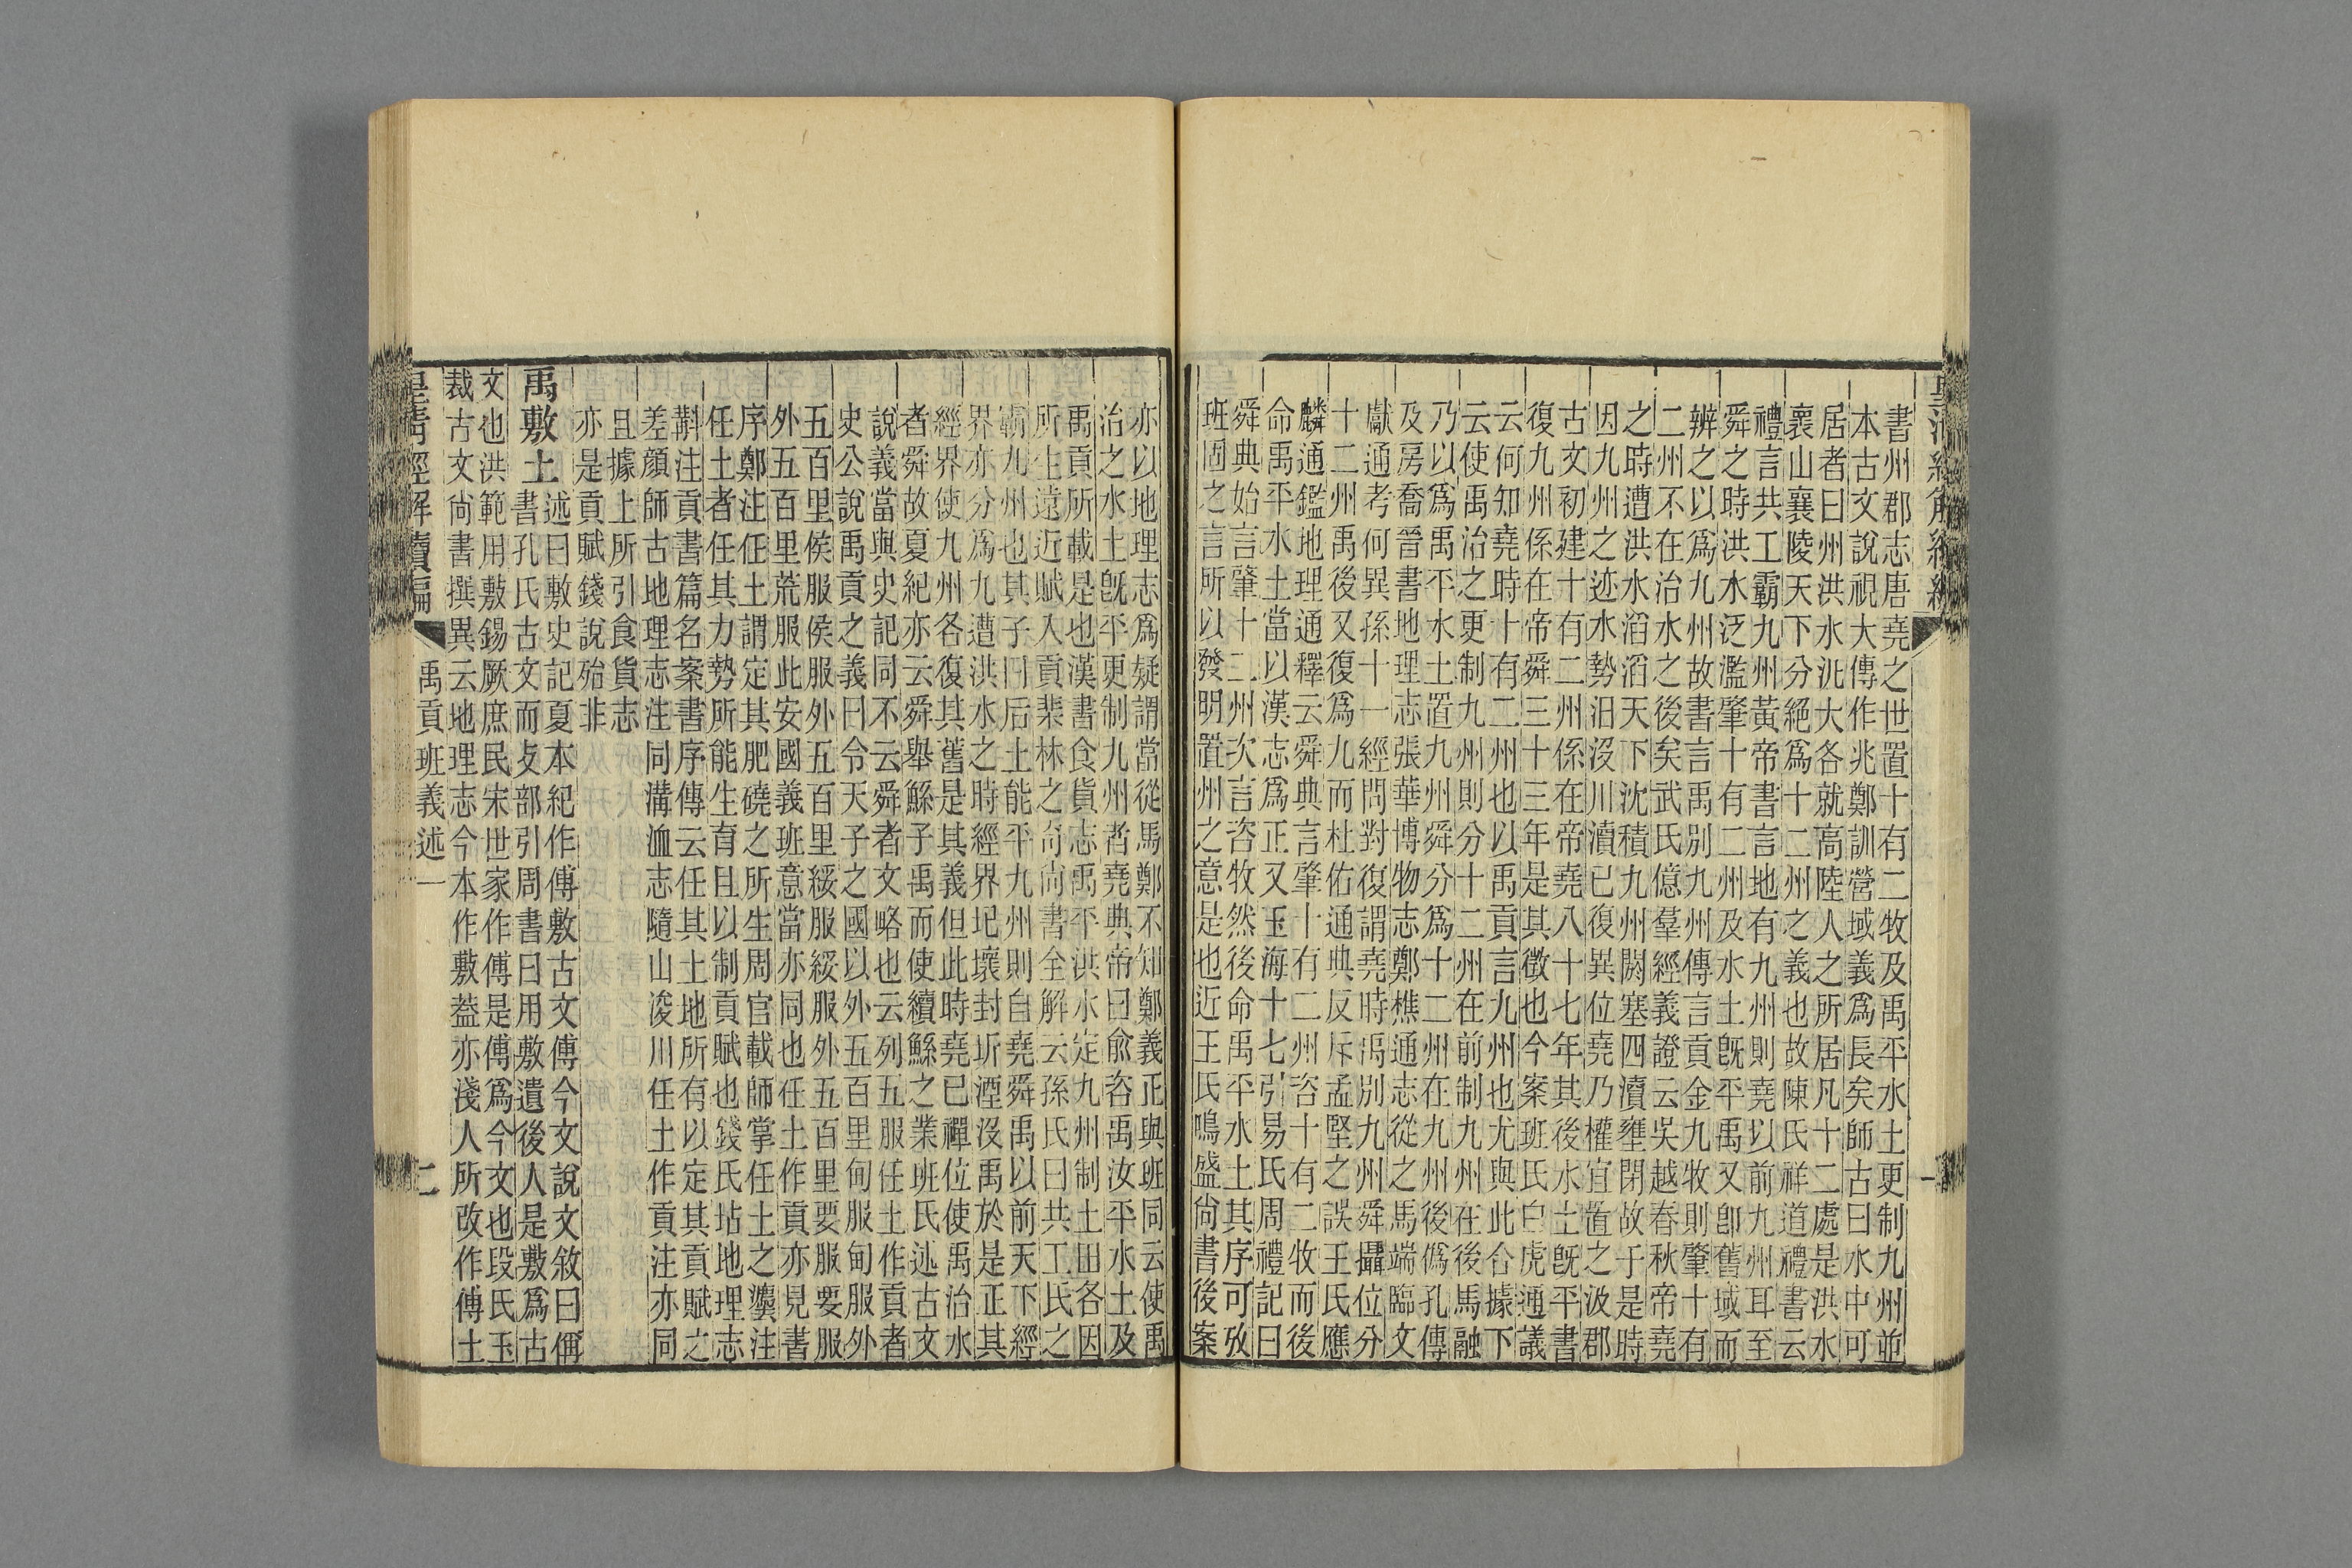 書州郡志唐堯之世置十有二牧及禹平水土更制九州並
本古文說視大傳作兆鄭訓營域義爲長矣師古曰水中可
居者曰州洪水汎大各就高陸人之所居凡十二處是洪水
襄山襄陵天下分絕爲十二州之義也故陳氏祥道禮書云
禮言共工霸九州黃帝書言地有九州則堯以前九州耳至
舜之時洪水泛濫肇十有二州及水土旣平禹又卽舊域而
辨之以爲九州故書言禹別九州傳言貢金九牧則肇十有
二州不在治水之後矣武氏億羣經義證云吳越春秋帝堯
之時遭洪水滔滔天下沈積九州閼塞四瀆壅閉故于是時
因九州之迹水勢汨沒川瀆已復異位堯乃權宜置之汲郡
古文初建十有二州係在帝堯八十七年其後水土旣平書
復九州係在帝舜三十三年是其徵也今案班氏白虎通議
云何知堯時十有二州也以禹貢言九州也尤與此合據下
云使禹治之更制九州則分十二州在前制九州在後馬融
乃以爲禹平水土置九州舜分爲十二州在九州後僞孔傳
及房喬晉書地理志張華博物志鄭樵通志從之馬端臨文
獻通考何異孫十一經問對復謂堯時禹別九州舜攝位分
十二州禹後又復爲九而杜佑通典反斥孟堅之誤王氏應
麟通鑑地理通釋云舜典言肇十有二州咨十有二牧而後
命禹平水土當以漢志爲正又玉海十七引易氏周禮記曰
舜典始言肇十二州次言咨牧然後命禹平水土其序可攷
班固之言所以發明置州之意是也近王氏鳴盛尙書後案
亦以地理志爲疑謂當從馬鄭不知鄭義正與班同云使禹
治之水土旣平更制九州者堯典帝曰兪咨禹汝平水土及
禹貢所載是也漢書食貨志禹平洪水定九州制土田各因
所生遠近賦入貢棐林之奇尙書全解云孫氏曰共工氏之
霸九州也其子曰后土能平九州則自堯舜禹以前天下經
界亦分爲九遭洪水之時經界圮壞封圻湮沒禹於是正其
經界使九州各復其舊是其義但此時堯已禪位使禹治水
者舜故夏紀亦云舜舉鯀子禹而使續鯀之業班氏述古文
說義當與史記同不云舜者文略也云列五服任土作貢者
史公說禹貢之義曰令天子之國以外五百里甸服甸服外
五百里侯服侯服外五百里綏服綏服外五百里要服要服
外五百里荒服此安國義班意當亦同也任土作貢亦見書
序鄭注任土謂定其肥磽之所生周官載師掌任土之灋注
任土者任其力勢所能生育且以制貢賦也錢氏坫地理志
斠注貢書篇名案書序傳云任其土地所有以定其貢賦之
差顏師古地理志注同溝洫志隨山浚川任土作貢注亦同
且據上所引食貨志
亦是貢賦錢說殆非
禹敷土
述曰敷史記夏本紀作傅敷古文傅今文說文敘曰偁
書孔氏古文而攴部引周書曰用敷遺後人是敷爲古
文也洪範用敷錫厥庶民宋世家作傅是傅爲今文也段氏玉
裁古文尙書撰異云地理志今本作敷葢亦淺人所改作傅土
皇淸經解續編
禹貢班義述一
二